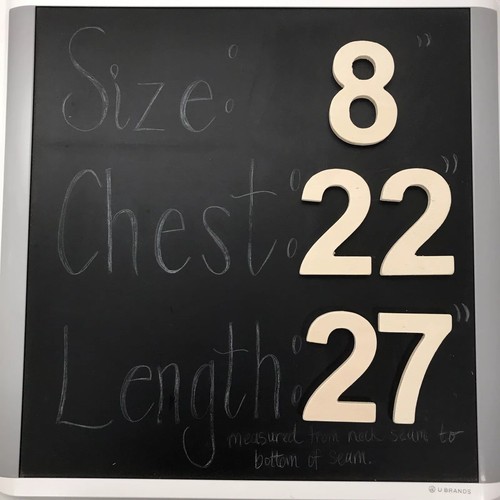 Size: 8"
Chest: 22"
Length: 27"
measured from neck seam to
bottom of seam.
U BRANDS